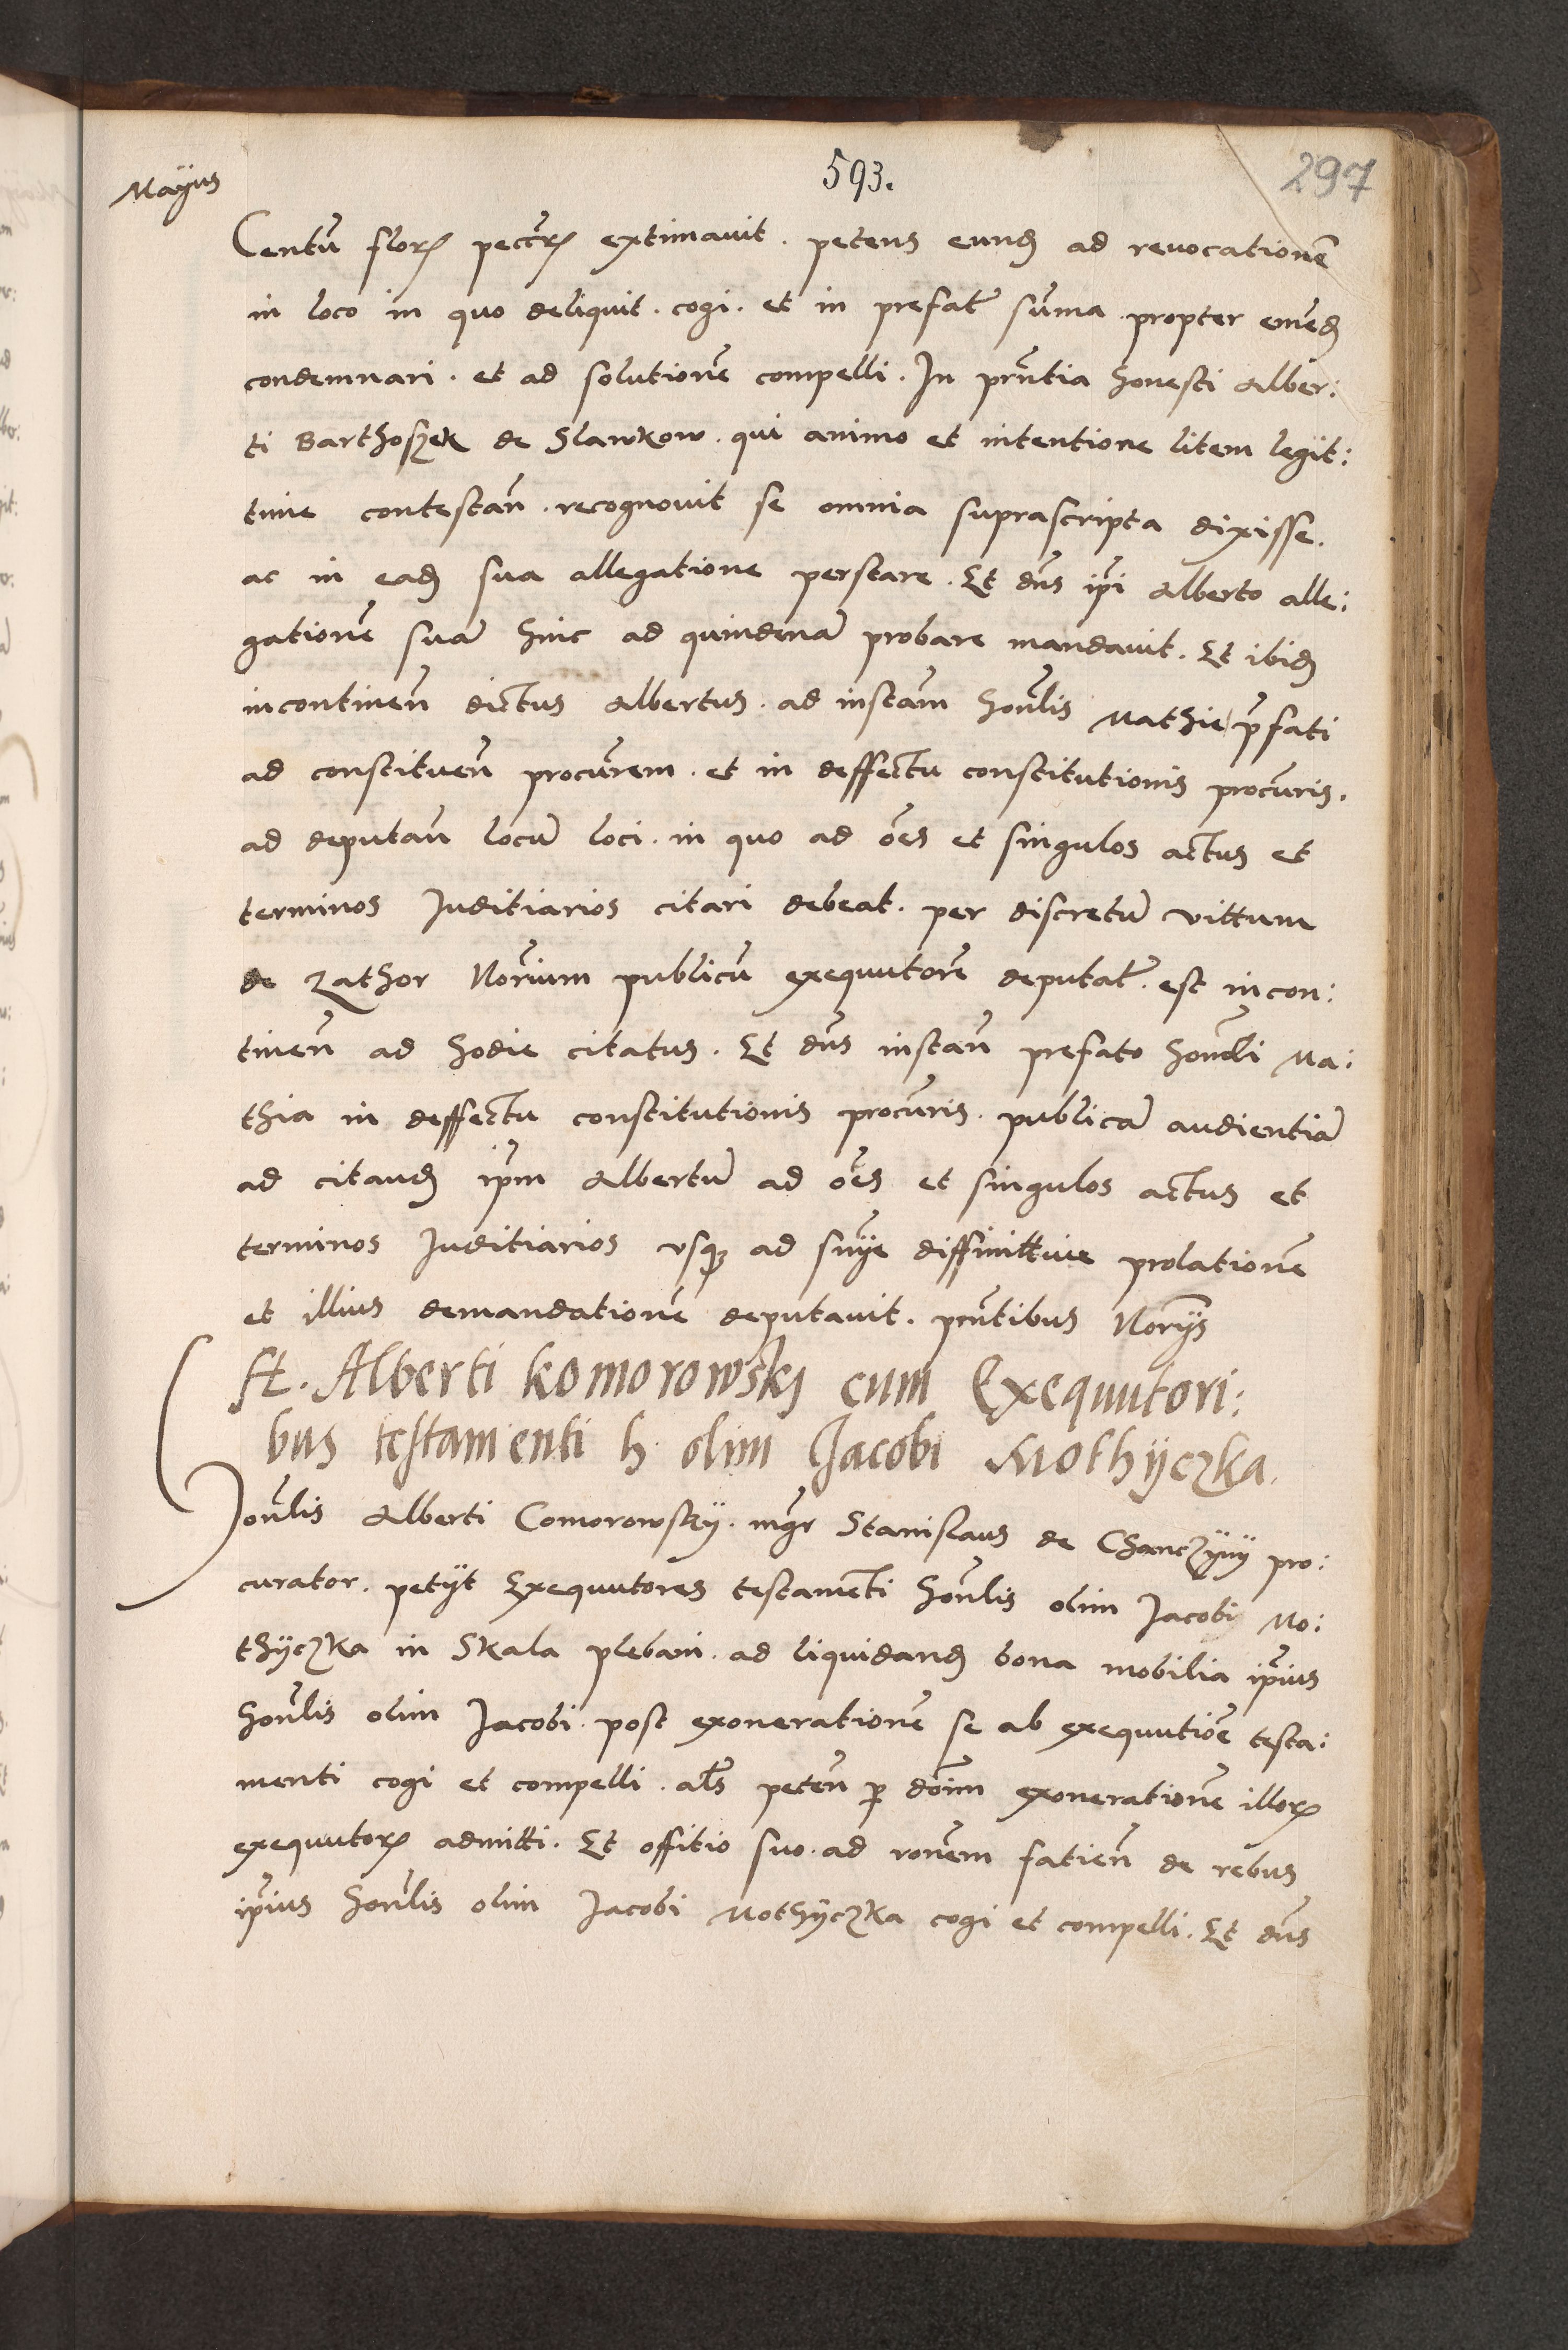 Mayus
593.
297
Centū floꝝ peccūꝝ extimavit . petens eundꝫ ad revocationē
in loco in quo deliquit . cogi . et in prefat̄ sūma . propter
condemnari . et ad solutionē compelli . In pn̄tia honesti Alber:
ti Barthoszek de Slawkow . qui animo et intentione litem legit:
time contestan̄ . recognovit se omnia suprascripta dixisse .
ac in eadꝫ sua allegatione perstare . Et dn̄s ip̄i Alberto alle:
gationē suā hinc ad quindenā probare mandavit . Et ibidꝫ
incontinen̄ dictus Albertus . ad instan̄ honl̄is Mathie p̄fati
ad constituen̄ procūrem . et in deffectu constitutionis procūris .
ad deputan̄ locū loci . in quo ad oēs et singulos actus et
terminos Iuditiarios citari debeat . per discretū vittum
de Zathor Nōrium publicū exequutorē deputat̄ . est incon:
tinen̄ ad hodie citatus . Et dn̄s instan̄ prefato honl̄i Ma:
thia in deffectu constitutionis procūris . publicā audientiā
ad citandꝫ ip̄m Albertū ad oēs et singulos actus et
terminos Iuditiarios usqꝫ ad sn̄ye diffinittive prolationē
et illius demandationē deputavit . pn̄tibus Nōrijs
Alberti Komorowskj cum Exequutori:
bus testamenti h. olim Jacobi Mothijczka .
honl̄is Alberti Comorowskij . mḡr Stanislaus de Chanczijnij pro:
curator . petijt Exequutores testamenti honl̄is olim Jacobi Mo:
thijczka in Skala plebani . ad liquidandꝫ bona mobilia ip̄ius
honl̄is olim Jacobi . post exonerationē se ab exequutiōe testa:
menti cogi et compelli . al̄s peten̄ ꝑ dōīm exonerationē illoꝝ
exequutoꝝ admitti . Et offitio suo . ad rōnem fatien̄ de rebus
ip̄ius honl̄is olim Jacobi Mothijczka cogi et compelli . Et dn̄s